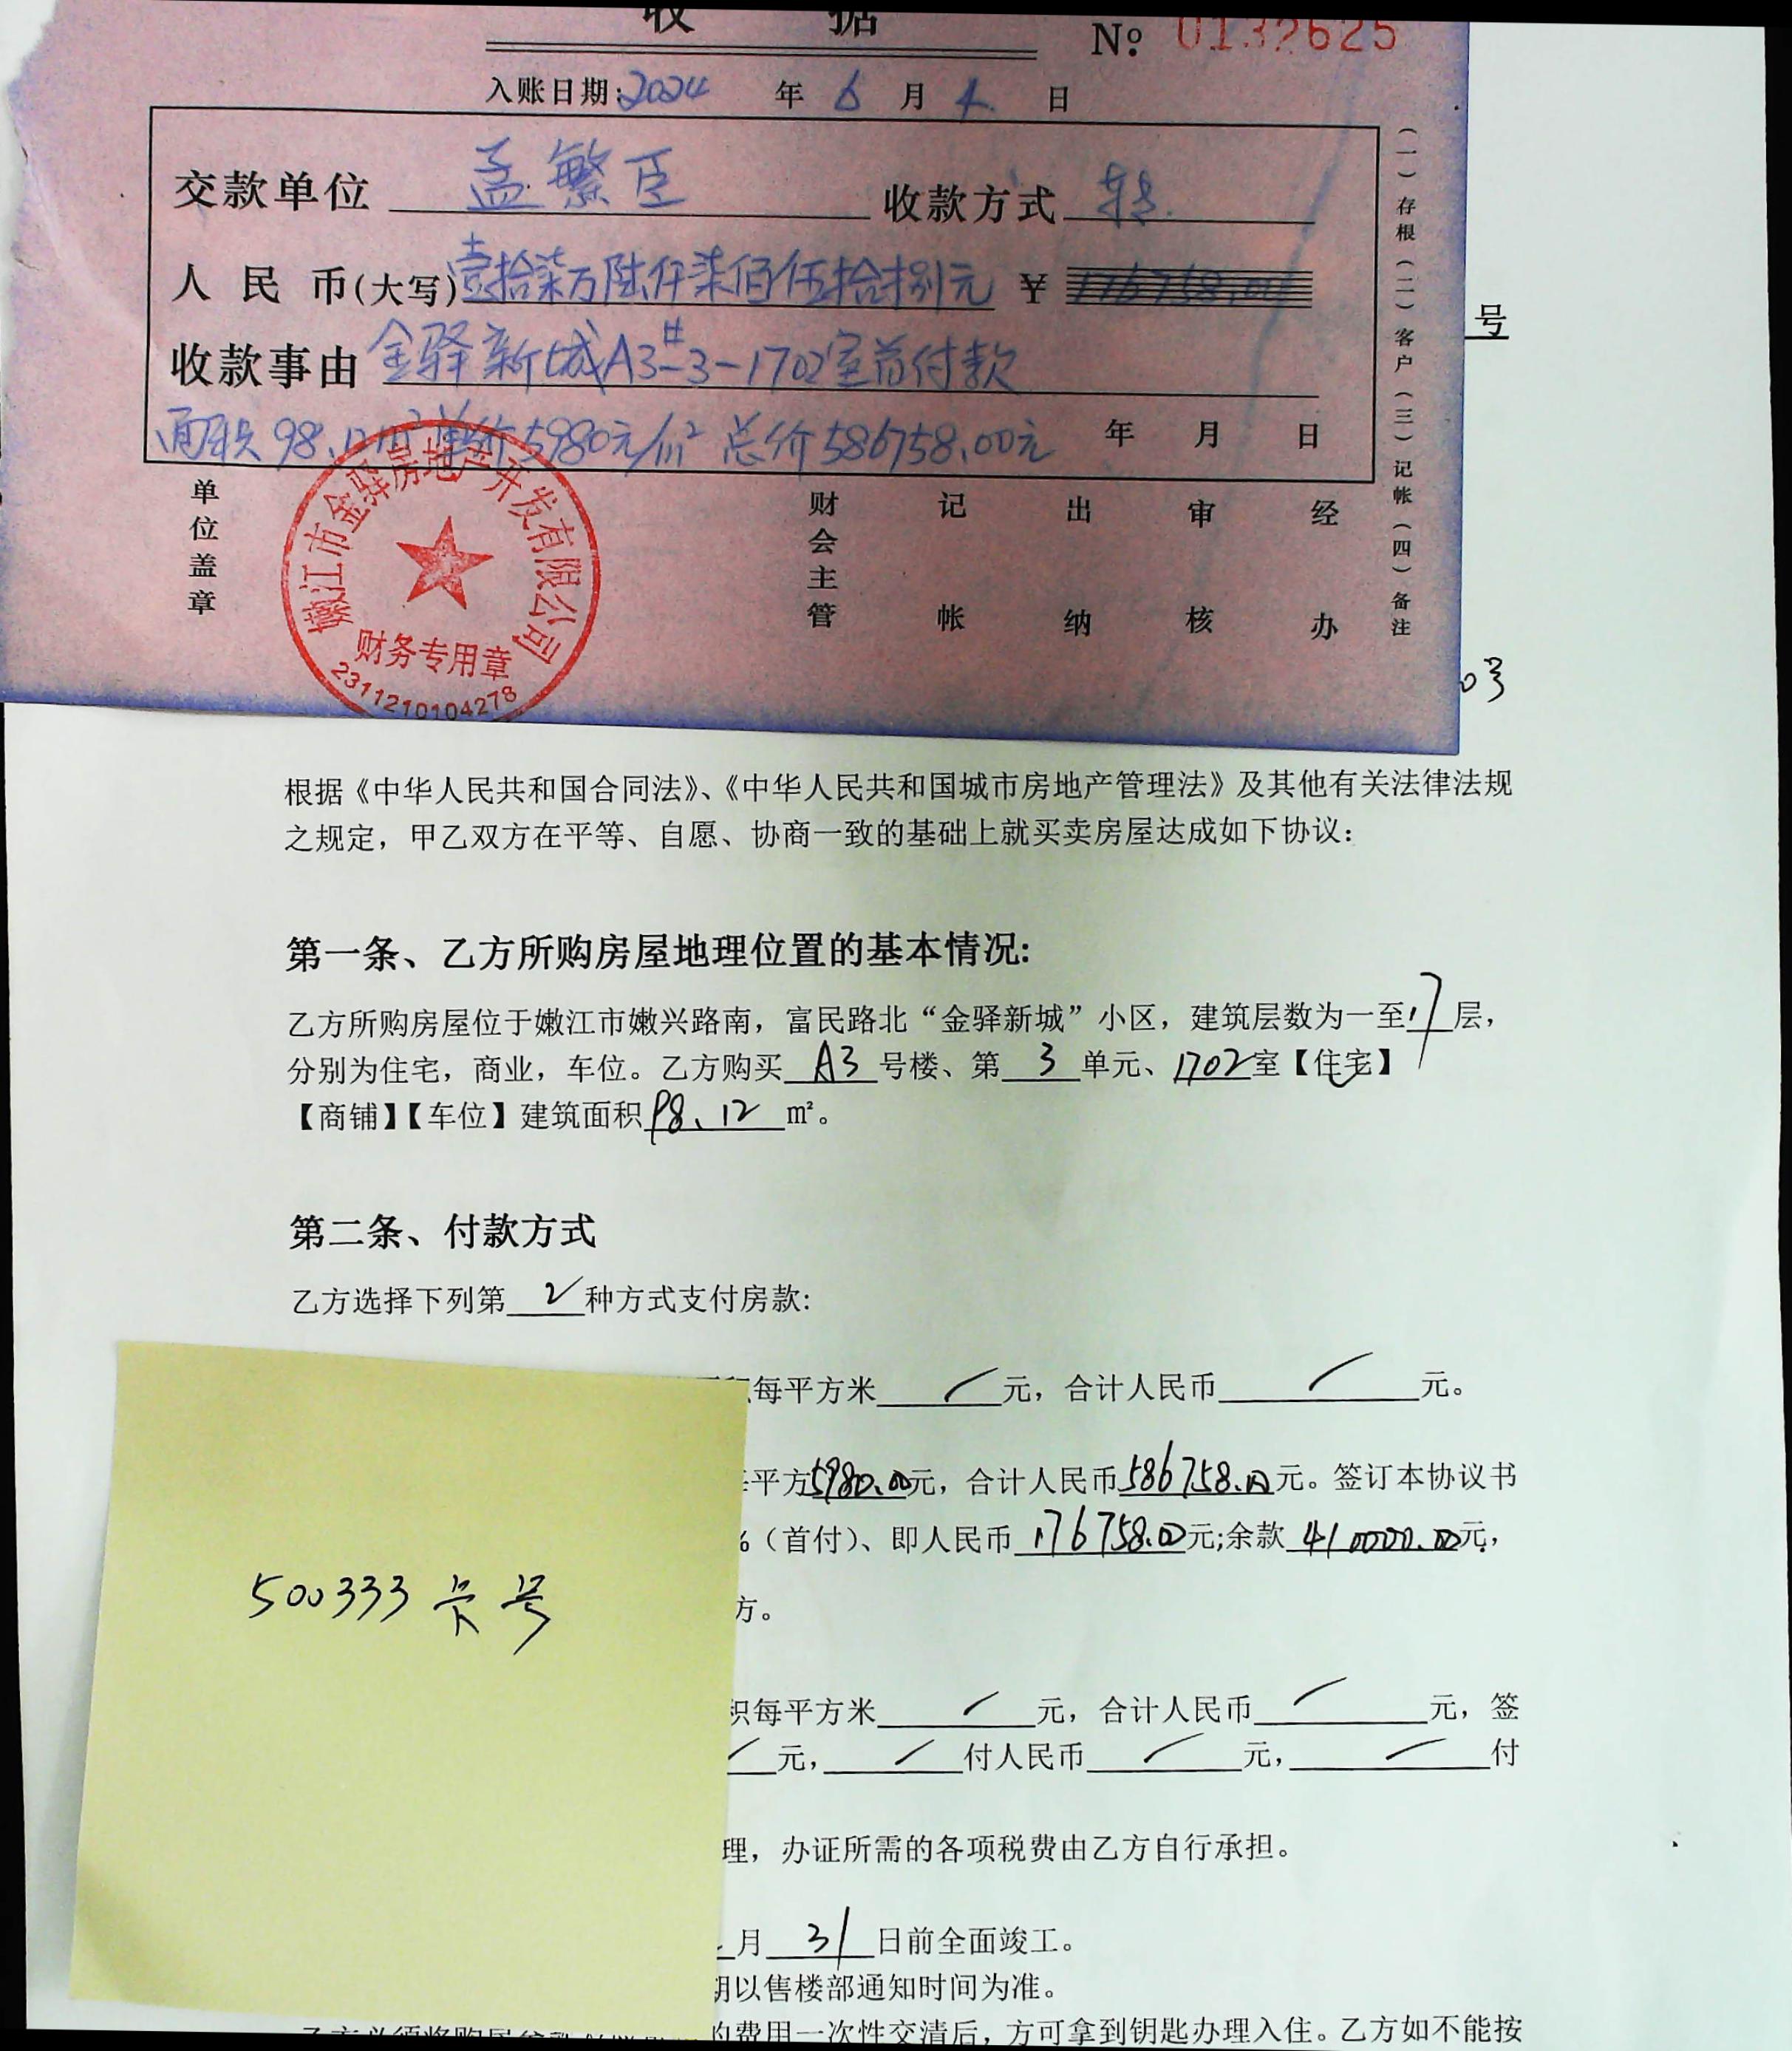 收 据
№ 0132625
入账日期:2024 年 6 月 1 日
交款单位 孟繁臣 收款方式 转
人民币(大写)壹拾柒万陆仟柒佰伍拾捌元 ¥ 176758.00
收款事由 金驿新城A3#-3-1702室首付款
面积98.12m² 单价5980元/m² 总价586758.00元 年 月 日
(一)存根(二)客户(三)记帐(四)备注
单位盖章 财会主管 记帐 出纳 审核 经办
嫩江市金驿房地产开发有限公司
财务专用章
2311210104278
号
03
根据《中华人民共和国合同法》、《中华人民共和国城市房地产管理法》及其他有关法律法规
之规定，甲乙双方在平等、自愿、协商一致的基础上就买卖房屋达成如下协议：
第一条、乙方所购房屋地理位置的基本情况:
乙方所购房屋位于嫩江市嫩兴路南，富民路北“金驿新城”小区，建筑层数为一至17层，
分别为住宅，商业，车位。乙方购买 A3 号楼、第 3 单元、1702室【住宅】
【商铺】【车位】建筑面积 98.12 ㎡。
第二条、付款方式
乙方选择下列第 2 种方式支付房款:
积每平方米 / 元，合计人民币 / 元。
每平方5980.00元，合计人民币586758.00元。签订本协议书
%（首付）、即人民币 176758.00元;余款 410000.00元，
方。
500333 卡号
积每平方米 / 元，合计人民币 / 元，签
/ 元， / 付人民币 / 元， / 付
理，办证所需的各项税费由乙方自行承担。
月 31 日前全面竣工。
期以售楼部通知时间为准。
乙方必须将购房 的费用一次性交清后，方可拿到钥匙办理入住。乙方如不能按